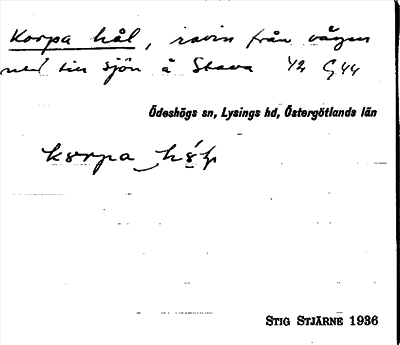 Korpa hål, ravin från vägen
ned till sjön å Stava 1/2 G44
Ödeshögs sn, Lysings hd, Östergötlands län
korpa
STIG STJÄRNE 1936